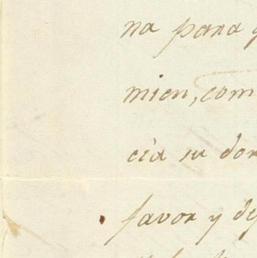 na para
mien, com
cia su don
favor y de